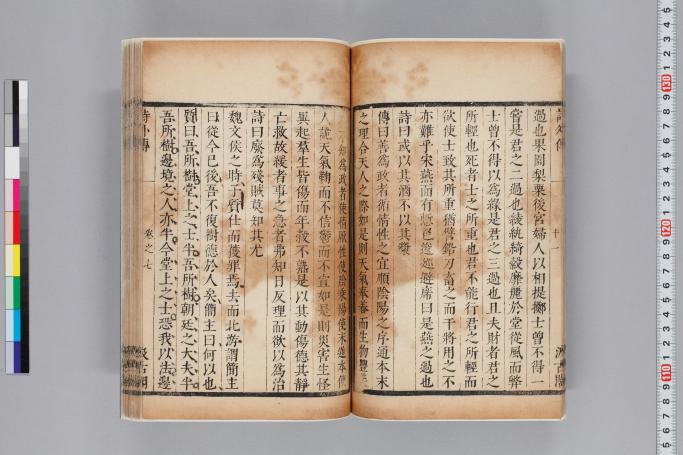 詩外傳
十一
汲古閣
過也果園梨栗後宮婦人以相提擲士曾不得一
嘗是君之二過也綾紈綺縠靡麗於堂從風而弊
士曾不得以為緣是君之三過也且夫財者君之
所輕也死者士之所重也君不能行君之所輕而
欲使士致其所重猶譬鉛刀畜之而干將用之不
亦難乎宋燕面有慙色逡巡避席曰是燕之過也
詩曰或以其酒不以其漿
傳曰善為政者循情性之宜順陰陽之序通本末
之理合天人之際如是則天氣奉養而生物豐美
不知為政者使情厭性使陰乘陽使末逆本使
人詭天氣鞠而不信鬱而不宜如是則災害生怪
異起羣生皆傷而年穀不熟是以其動傷德其靜
亡救故緩者事之急者弗知日反理而欲以為治
詩曰廢為殘賊莫知其尤
魏文侯之時子質仕而獲罪焉去而北游謂簡主
曰從今已後吾不復樹德於人矣簡主曰何以也
質曰吾所樹堂上之士半吾所樹朝廷之大夫半
吾所樹邊境之人亦半今堂上之士惡我以法邊
詩外傳
卷之七
汲古閣
130
120
110